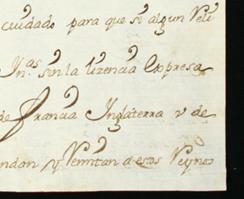 ciudado para que se algun Vei
Jn.as son la lizencia Expresa
de Francia Jnglaterra y de
ndan y Vemitan a esos Reynos